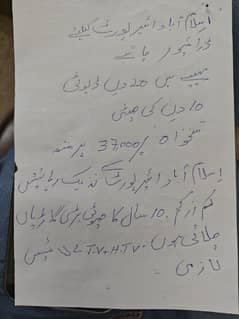 اسلام آباد ائیرپورٹ کیلئے
ڈرائیور چاہیے
مہینے میں 20 دن ڈیوٹی
10 دن کی چھٹی
تنخواہ 37,000/ پر منتھ
اسلام آباد ائیرپورٹ کے نزدیک رہائش
کم از کم 10 سال کا چھوٹی بڑی گاڑیاں
چلائی ہوں۔ L.T.V. H.T.V لائسنس
لازمی